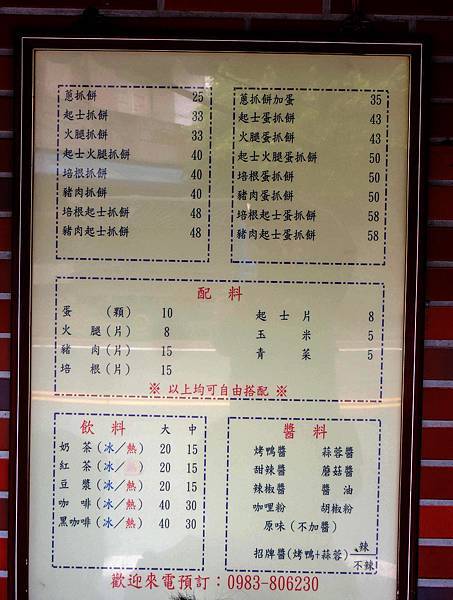 蔥抓餅 25
起士抓餅 33
火腿抓餅 33
起士火腿抓餅 40
培根抓餅 40
豬肉抓餅 40
培根起士抓餅 48
豬肉起士抓餅 48
蔥抓餅加蛋 35
起士蛋抓餅 43
火腿蛋抓餅 43
起士火腿蛋抓餅 50
培根蛋抓餅 50
豬肉蛋抓餅 50
培根起士蛋抓餅 58
豬肉起士蛋抓餅 58
配料
蛋 (顆) 10
火腿(片) 8
豬肉(片) 15
培根(片) 15
起士片 8
玉米 5
青菜 5
※ 以上均可自由搭配 ※
飲料 大 中
奶茶(冰/熱) 20 15
紅茶(冰/熱) 20 15
豆漿(冰/熱) 20 15
咖啡(冰/熱) 40 30
黑咖啡(冰/熱) 40 30
醬料
烤鴨醬 蒜蓉醬
甜辣醬 蘑菇醬
辣椒醬 醬油
咖哩粉 胡椒粉
原味(不加醬)
招牌醬(烤鴨+蒜蓉) 辣
不辣
歡迎來電預訂:0983-806230